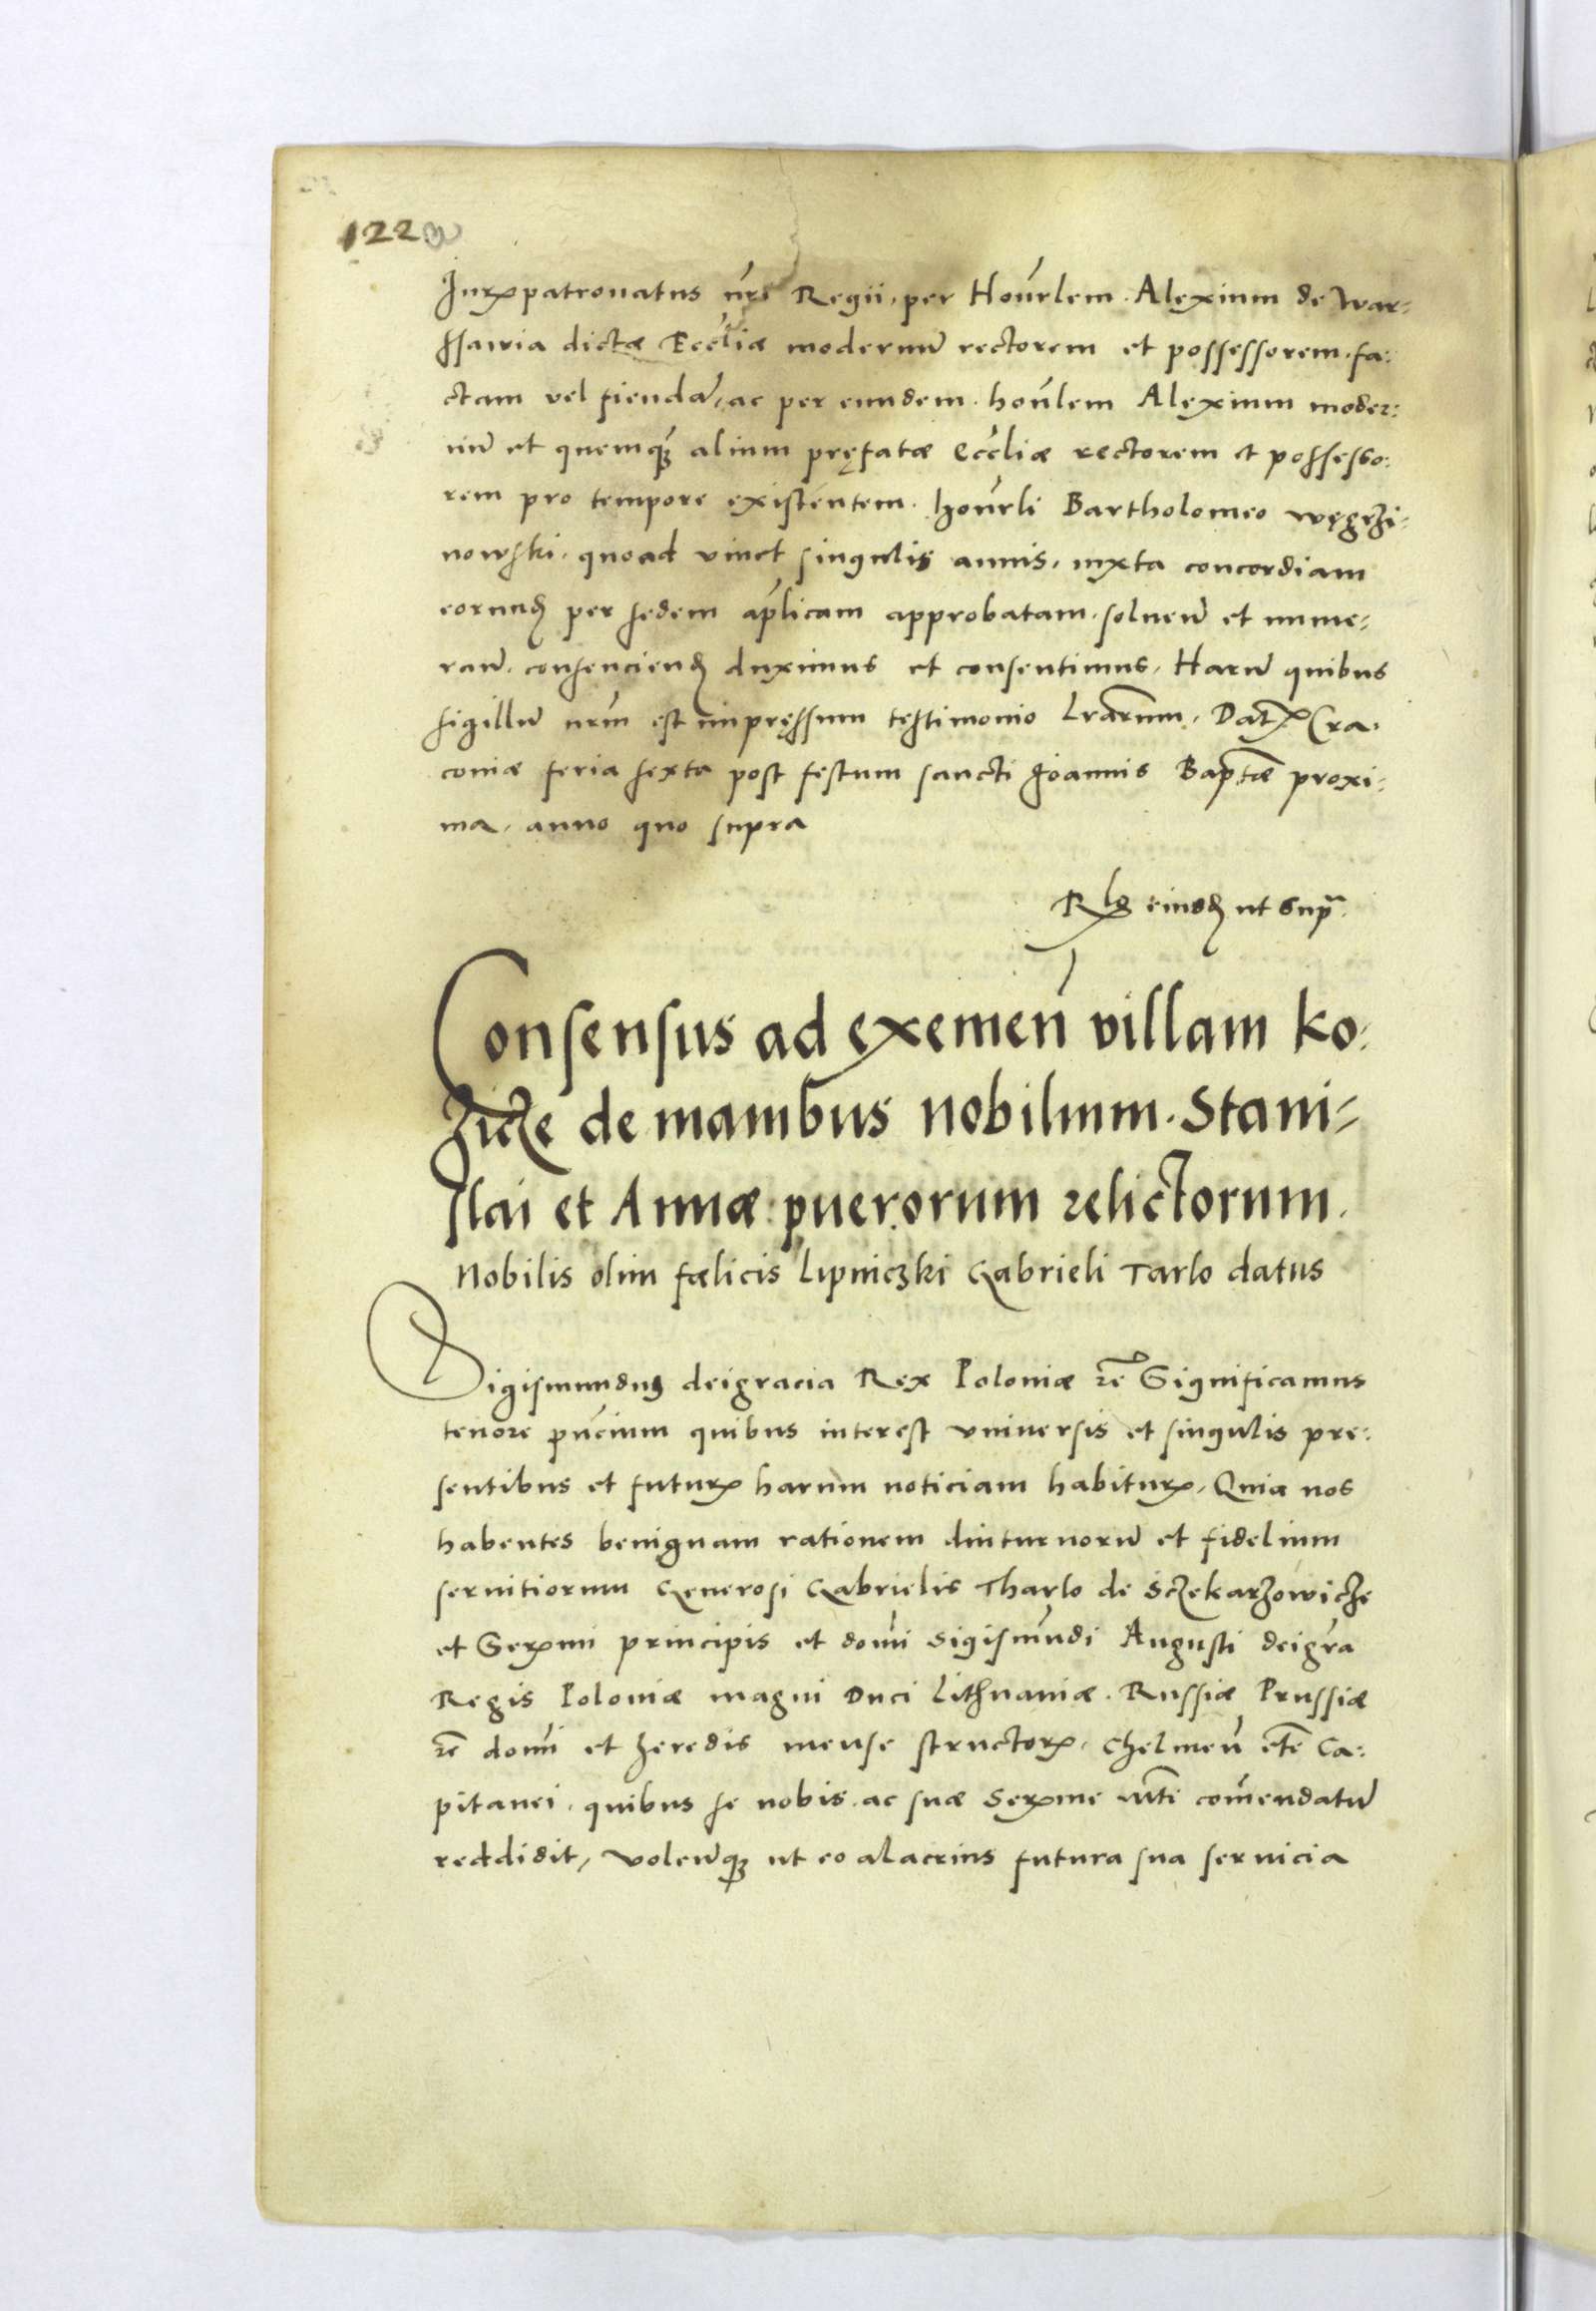 122
Jurispatronatus nri Regii, per Honrlem. Alexium de War-
ssawia dictæ Eccliæ modernu rectorem et possessorem. fa:
ctam vel fiendã, ac per eundem. honlem Alexium moder:
nũ et quemqz alium pręfatæ eccliæ rectorem et possesso:
rem pro tempore existentem. honrli Bartholomeo węgrzi-
nowski. quoad vixct singulis annis, iuxta concordiam
eorund per sedem aplicam approbatam. soluenũ et nume-
ranũ. consenciend duximus et consentimus, Harũ quibus
sigillũ nrm est impręssum testimonio Lrarum. Datx Cra-
coniæ feria sexta post festum sancti Joannis Baptæ proxi-
ma, anno quo supra
Rlo eiusd ut supra
Consensus ad exemen villam Ko-
zicze de manibus nobilium. Stani-
slai et Annæ puerorum relictorum.
Nobilis olim fælicis Lipniczki Gabrieli Tarlo datus
Sigismundus deigracia Rex Poloniæ rc Significamus
tenore pncium quibus interest vniuersis et singulis pre:
sentibus et futuris harum noticiam habituris, Quia nos
habentes benignam rationem diuturnorũ et fidelium
seruitiorum Generosi Gabrielis Tharlo de Sczekarzowicze
et Sermi principis et domi Sigismundi Augusti deigra
Regis Poloniæ magni Duci Lithuaniæ. Russiæ Prussiæ
rc domi et heredis mense structoris. Chelmen etc Ca:
pitanei. quibus se nobis. ac suæ Serme mti comendatũ
reddidit, volenqz ut eo alacrius futura sua seruicia